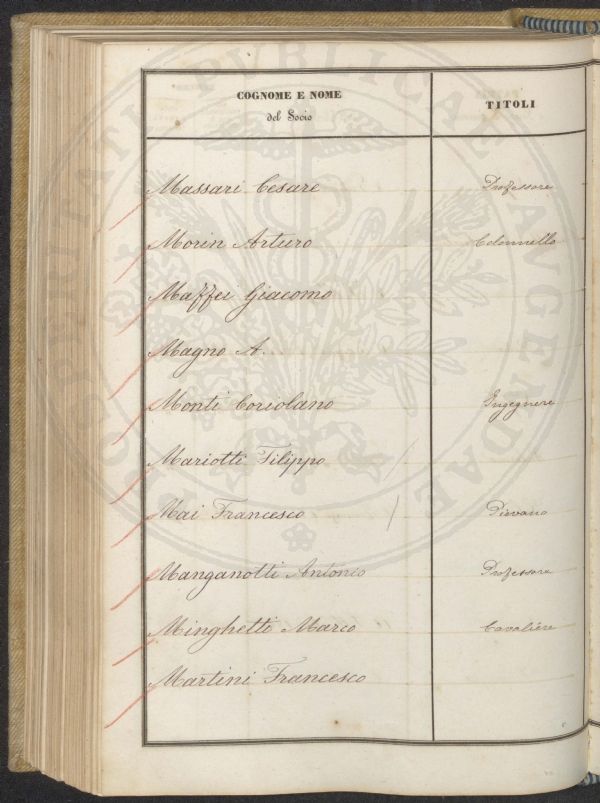 COGNOME E NOME
del Socio
TITOLI
Massari Cesare Professore
Morin Arturo Colonnello
Maffei Giacomo
Magno A.
Monti Coriolano Ingegnere
Mariotti Filippo
Mai Francesco Pievano
Manganotti Antonio Professore
Minghetti Marco Cavaliere
Martini Francesco
PROSPERITATI PUBLICAE AUGENDAE